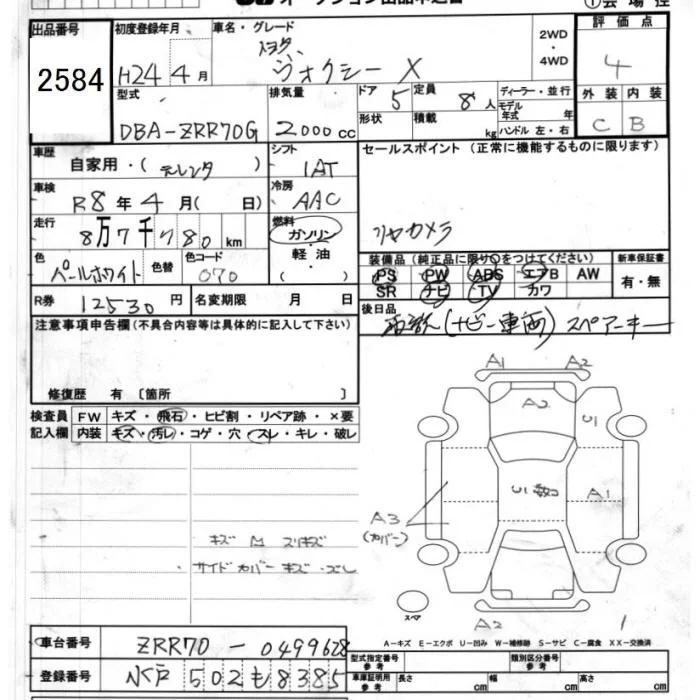 出品番号 初度登録年月 車名・グレード 評価点
2584 H24年4月 トヨタ ヴォクシー X 2WD・4WD 4
型式 排気量 ドア 定員 ディーラー・並行 外装 内装
DBA-ZRR70G 2000cc 5 8人 モデル年式 年 C B
形状 積載 kg ハンドル 左・右
車歴 自家用・( 元レンタ ) シフト IAT セールスポイント (正常に機能するものに限ります)
車検 R8年4月( 日) 冷房 AAC
走行 8万7千780km 燃料 ガソリン・軽油・( ) リヤカメラ
色 パールホワイト 色替 色コード 070
装備品 (純正品に限り〇をつけてください) 新車保証書
PS PW ABS エアB AW 有・無
SR ナビ TV カワ
R券 12530円 名変期限 月 日
後日品 取説(ナビ・車両) スペアキー
注意事項申告欄(不具合内容等は具体的に記入して下さい)
修復歴 有 〔箇所 〕
検査員 FW キズ・飛石・ヒビ割・リペア跡・×要
記入欄 内装 キズ・汚レ・コゲ・穴・スレ・キレ・破レ
A1 A2
A2
A1
A3
(カバー)
キズ M スリキズ
サイドカバー キズ・ズレ
スペア
A2
A-キズ E-エクボ U-凹み W-補修跡 S-サビ C-腐食 XX-交換済
車台番号 ZRR70-0499628
型式指定番号 参考 類別区分番号 参考
登録番号 水戸 502 も 8385
車庫証明用 参考 長さ cm 幅 cm 高さ cm